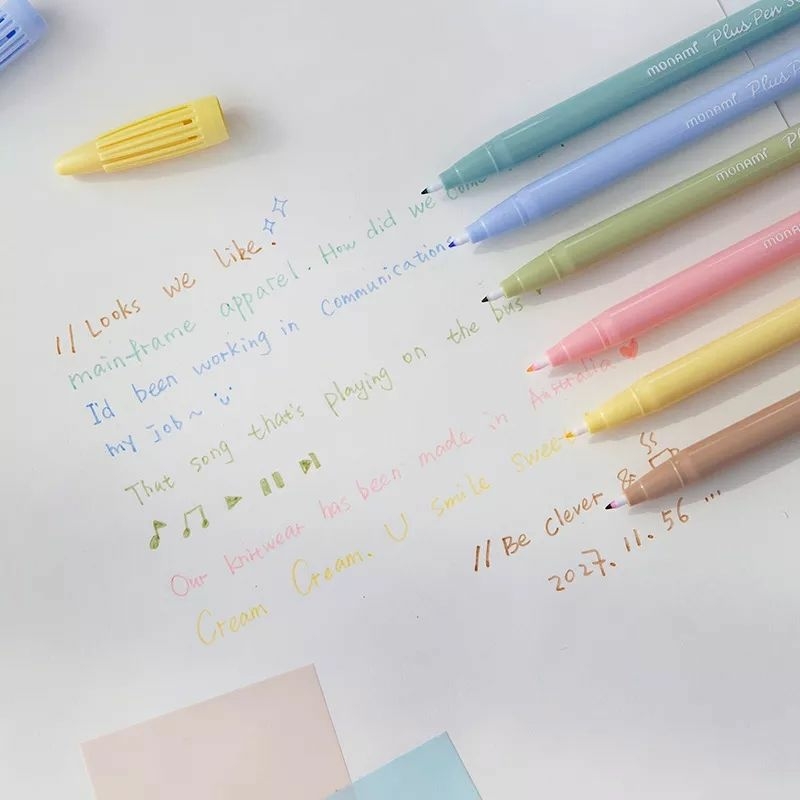 monami Plus Pen
monami Plus Pen
monami
monami
// Looks we like.
mainframe apparel. How did we come
I'd been working in Communications
my job~
That song that's playing on the bus
Our knitwear has been made in Australia
Cream Cream. U smile sweet
// Be clever &
2027. 11. 56 ...